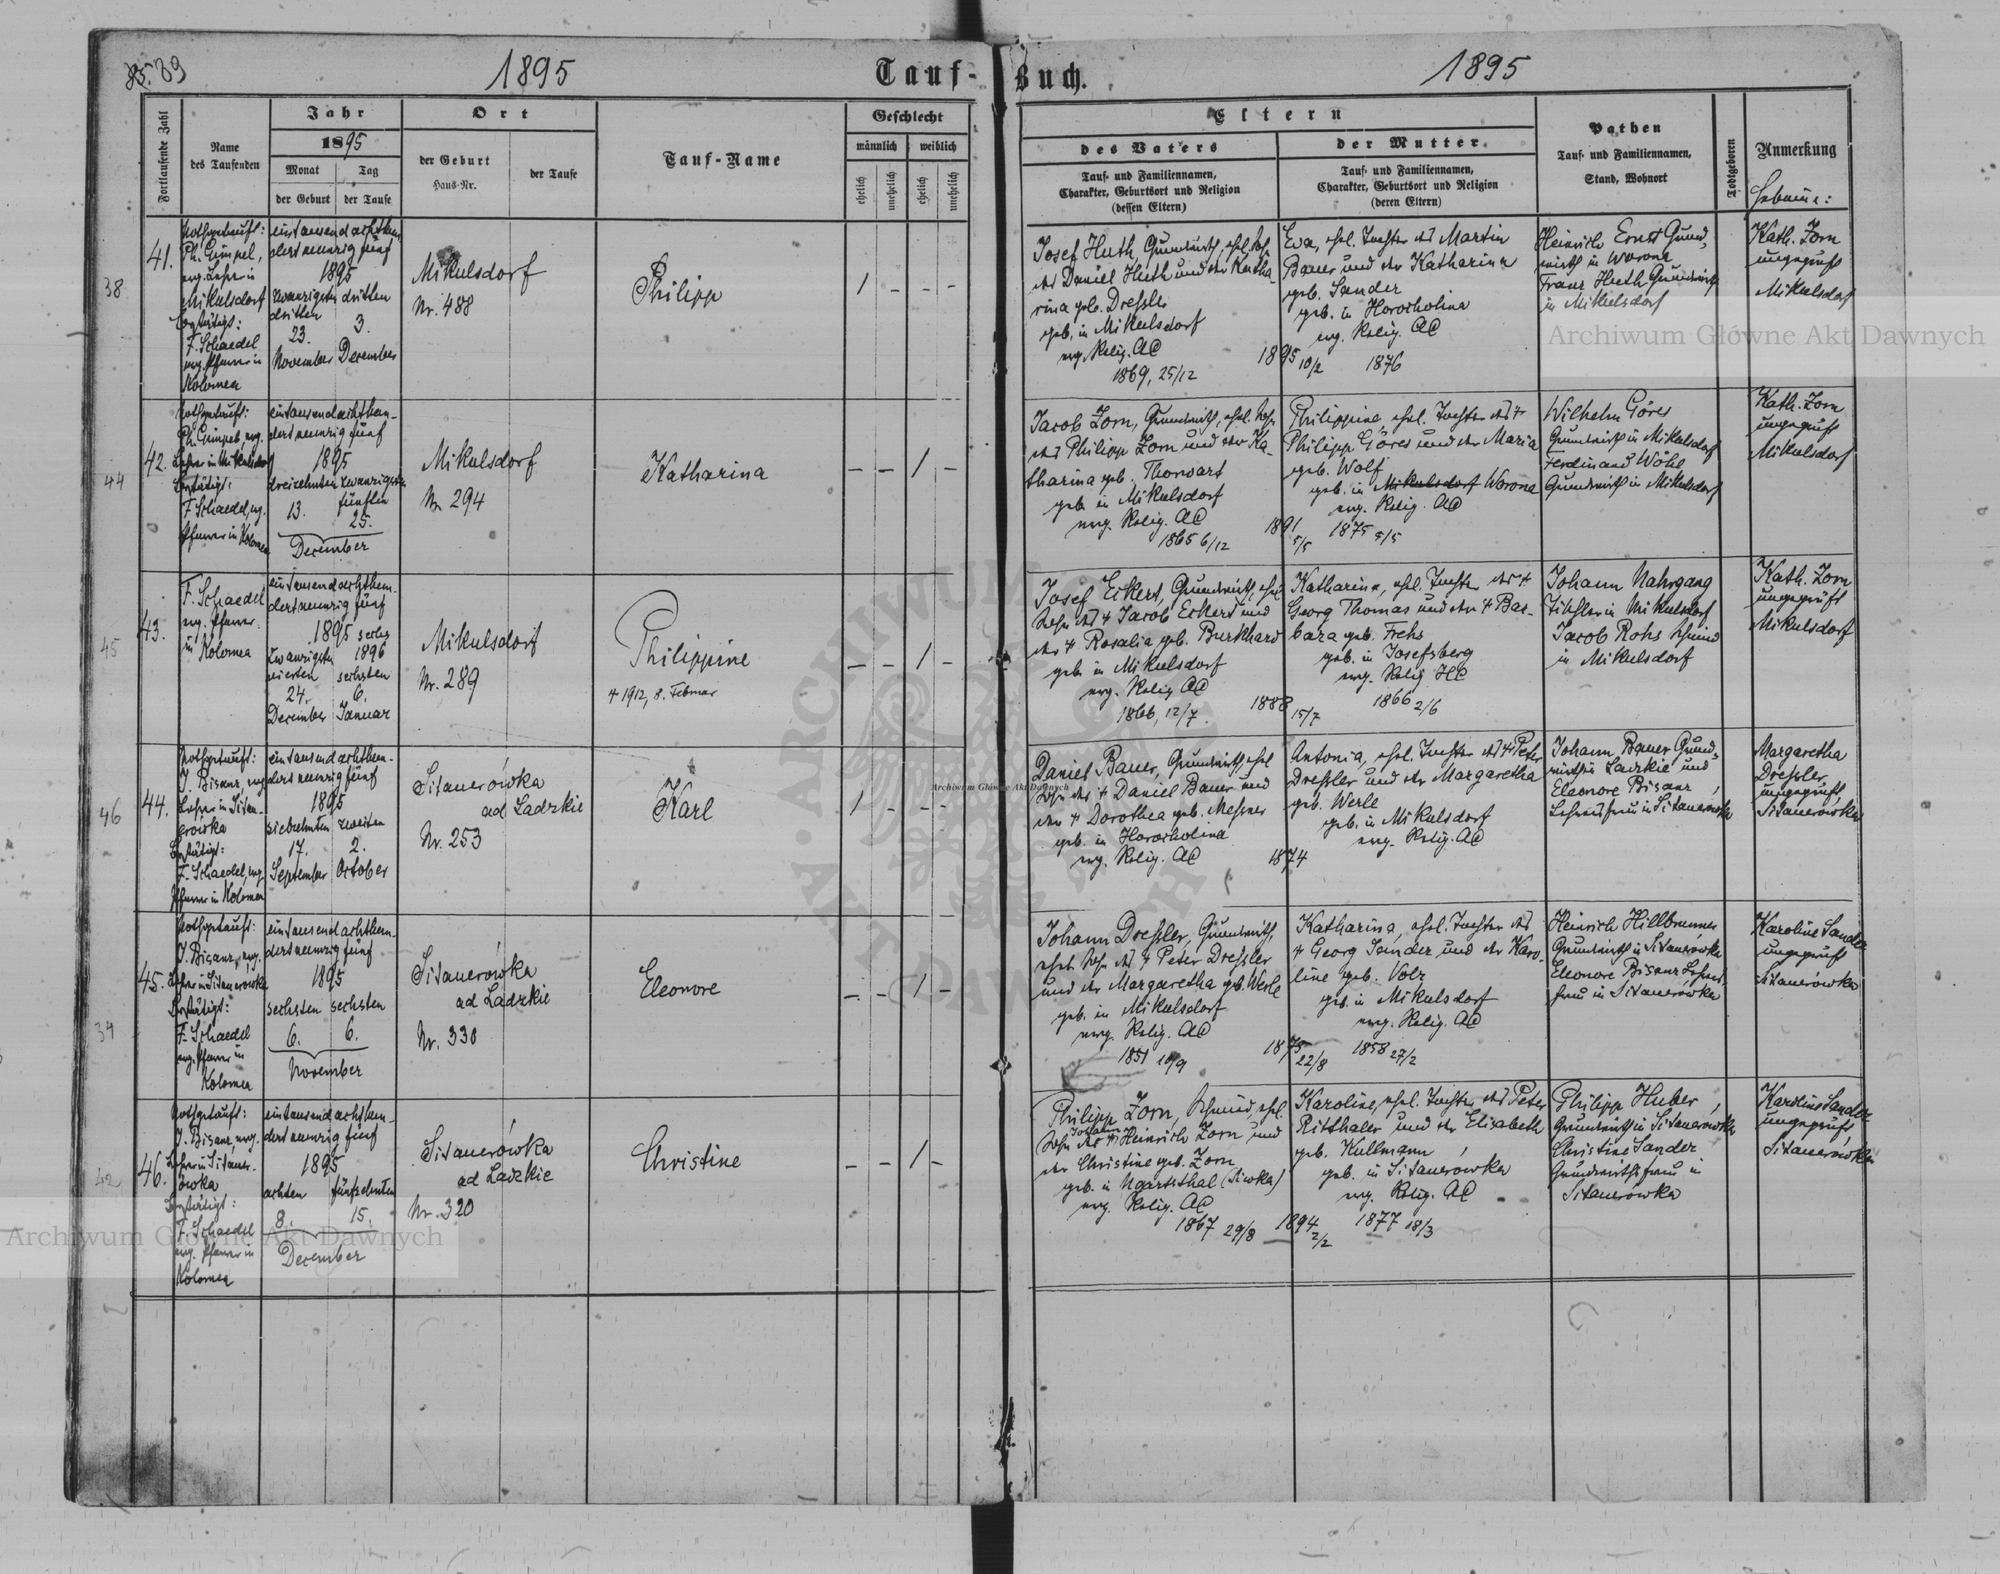 85. 89
1895
Tauf-Buch.
1895
Fortlaufende Zahl
Name
des Taufenden
Jahr
1895
Monat
Tag
der Geburt
der Taufe
Ort
der Geburt
Haus-Nr.
der Taufe
Tauf-Name
Geschlecht
männlich
weiblich
ehelich
unehelich
ehelich
unehelich
Eltern
des Vaters
Tauf- und Familiennamen,
Charakter, Geburtsort und Religion
(dessen Eltern)
der Mutter
Tauf- und Familiennamen,
Charakter, Geburtsort und Religion
(deren Eltern)
Pathen
Tauf- und Familiennamen,
Stand, Wohnort
Todtgeboren
Anmerkung
Hebamme:
38
41.
Nothgetauft:
Ph. Gimpel,
evg. Lehrer in
Mikulsdorf
Bestätigt:
F. Schaedel
evg. Pfarrer in
Kolomea
eintausendachthun-
dertneunzig fünf
1895
zwanzigsten dritten
dritten
23. 3.
November December
Mikulsdorf
Nr. 488
Philipp
/ - - -
Josef Huth, Grundwirth, ehel. Sohn
des Daniel Huth und der Katha-
rina geb. Dressler
geb. in Mikulsdorf
evg. Relig. AC
1869, 25/12
1895 10/2
Eva, ehel. Tochter des Martin
Bauer und der Katharina
geb. Sander
geb. in Horocholina
evg. Relig. AC
1876
Heinrich Ernst Grund-
wirth in Worona
Franz Huth Grundwirth
in Mikulsdorf
Kath. Zorn
ungeprüft
Mikulsdorf
44
42.
Nothgetauft:
Ph. Gimpel, evg.
Lehrer in Mikulsdorf
Bestätigt:
F. Schaedel, evg.
Pfarrer in Kolomea
eintausendachthun-
dertneunzig fünf
1895
dreizehnten zwanzigsten
fünften
13. 25.
December
Mikulsdorf
Nr. 294
Katharina
- - / -
Jacob Zorn, Grundwirth, ehel. Sohn
des Philipp Zorn und der Ka-
tharina geb. Thorwart
geb. in Mikulsdorf
evg. Relig. AC
1865 6/12
1891 5/5
Philippina, ehel. Tochter des +
Philipp Göres und der Maria
geb. Wolf
geb. in Mikulsdorf Worona
evg. Relig. AC
1875 5/5
Wilhelm Göres
Grundwirth in Mikulsdorf
Ferdinand Wöhl
Grundwirth in Mikulsdorf
Kath. Zorn
ungeprüft
Mikulsdorf
45
43.
F. Schaedel
evg. Pfarrer
in Kolomea
eintausendachthun-
dertneunzig fünf
1895 sechs
zwanzigsten 1896
vierten sechsten
24. 6.
December Januar
Mikulsdorf
Nr. 289
Philippine
+ 1912, 8. Februar
- - / -
Josef Eckert, Grundwirth, ehel.
Sohn des + Jacob Eckert und
der + Rosalia geb. Burkhard
geb. in Mikulsdorf
evg. Relig. AC
1866, 12/7
1888 15/7
Katharina, ehel. Tochter des +
Georg Thomas und der + Bar-
bara geb. Frehs
geb. in Josefsberg
evg. Relig. HC
1866 2/6
Johann Nahrgang
Tischler in Mikulsdorf
Jacob Rohs Schmied
in Mikulsdorf
Kath. Zorn
ungeprüft
Mikulsdorf
46
44.
Nothgetauft:
J. Bisanz, evg.
Lehrer in Sitau-
erowka
Bestätigt:
F. Schaedel, evg.
Pfarrer in Kolomea
eintausendachthun-
dertneunzig fünf
1895
siebzehnten zweiten
17. 2.
September October
Sitauerówka
ad Ladzkie
Nr. 253
Karl
/ - - -
Daniel Bauer, Grundwirth, ehel.
Sohn des + Daniel Bauer und
der + Dorothea geb. Messner
geb. in Horocholina
evg. Relig. AC
1874
Antonia, ehel. Tochter des + Peter
Dressler und der Margaretha
geb. Werle
geb. in Mikulsdorf
evg. Relig. AC
Johann Bauer Grund-
wirth in Ladzkie und
Eleonore Bisanz
Lehrersfrau in Sitauerówka
Margaretha
Dressler
ungeprüft
Sitauerówka
34
45.
Nothgetauft:
J. Bisanz, evg.
Lehrer in Sitauerówka
Bestätigt:
F. Schaedel
evg. Pfarrer in
Kolomea
eintausendachthun-
dertneunzig fünf
1895
sechsten sechsten
6. 6.
November
Sitauerówka
ad Ladzkie
Nr. 330
Eleonore
- - / -
Johann Dressler, Grundwirth,
ehel. Sohn des + Peter Dressler
und der Margaretha geb. Werle
geb. in Mikulsdorf
evg. Relig. AC
1851 10/9
1875 22/8
Katharina, ehel. Tochter des
+ Georg Sander und der Karo-
line geb. Volz
geb. in Mikulsdorf
evg. Relig. AC
1858 27/2
Heinrich Hillbrunner
Grundwirth in Sitauerówka
Eleonore Bisanz Lehrers-
frau in Sitauerówka
Karoline Sander
ungeprüft
Sitauerówka
42
46.
Nothgetauft:
J. Bisanz, evg.
Lehrer in Sitauer-
ówka
Bestätigt:
F. Schaedel
evg. Pfarrer in
Kolomea
eintausendachthun-
dertneunzig fünf
1895
achten fünfzehnten
8. 15.
December
Sitauerówka
ad Ladzkie
Nr. 320
Christine
- - / -
Philipp Zorn, Schmied, ehel.
Johann
Sohn des + Heinrich Zorn und
der Christine geb. Zorn
geb. in Ugartsthal (Siwka)
evg. Relig. AC
1867 29/8
1894 2/2
Karoline, ehel. Tochter des Peter
Ritthaler und der Elisabeth
geb. Kullmann
geb. in Sitauerówka
evg. Relig. AC
1877 18/3
Philipp Huber
Grundwirth in Sitauerówka
Christine Sander
Grundwirthsfrau in
Sitauerówka
Karoline Sander
ungeprüft
Sitauerówka
Archiwum Główne Akt Dawnych
Archiwum Główne Akt Dawnych
Archiwum Główne Akt Dawnych